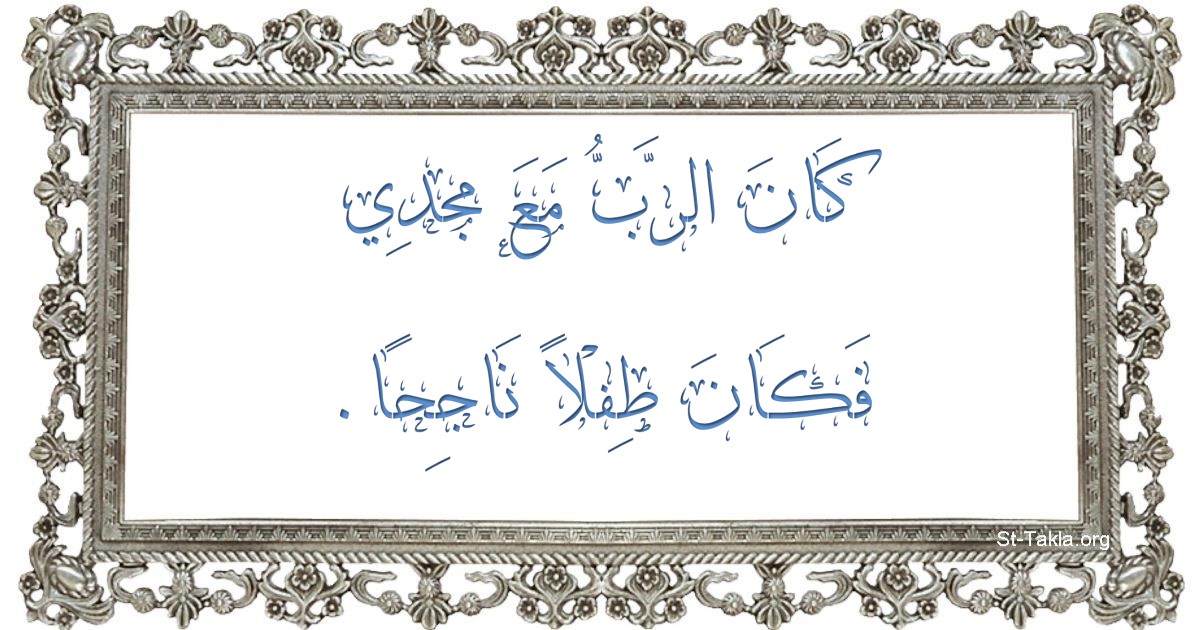 كَانَ الرَّبُّ مَعَ مجْدِي
فَكَانَ طِفْلاً نَاجِحًا .
St-Takla.org